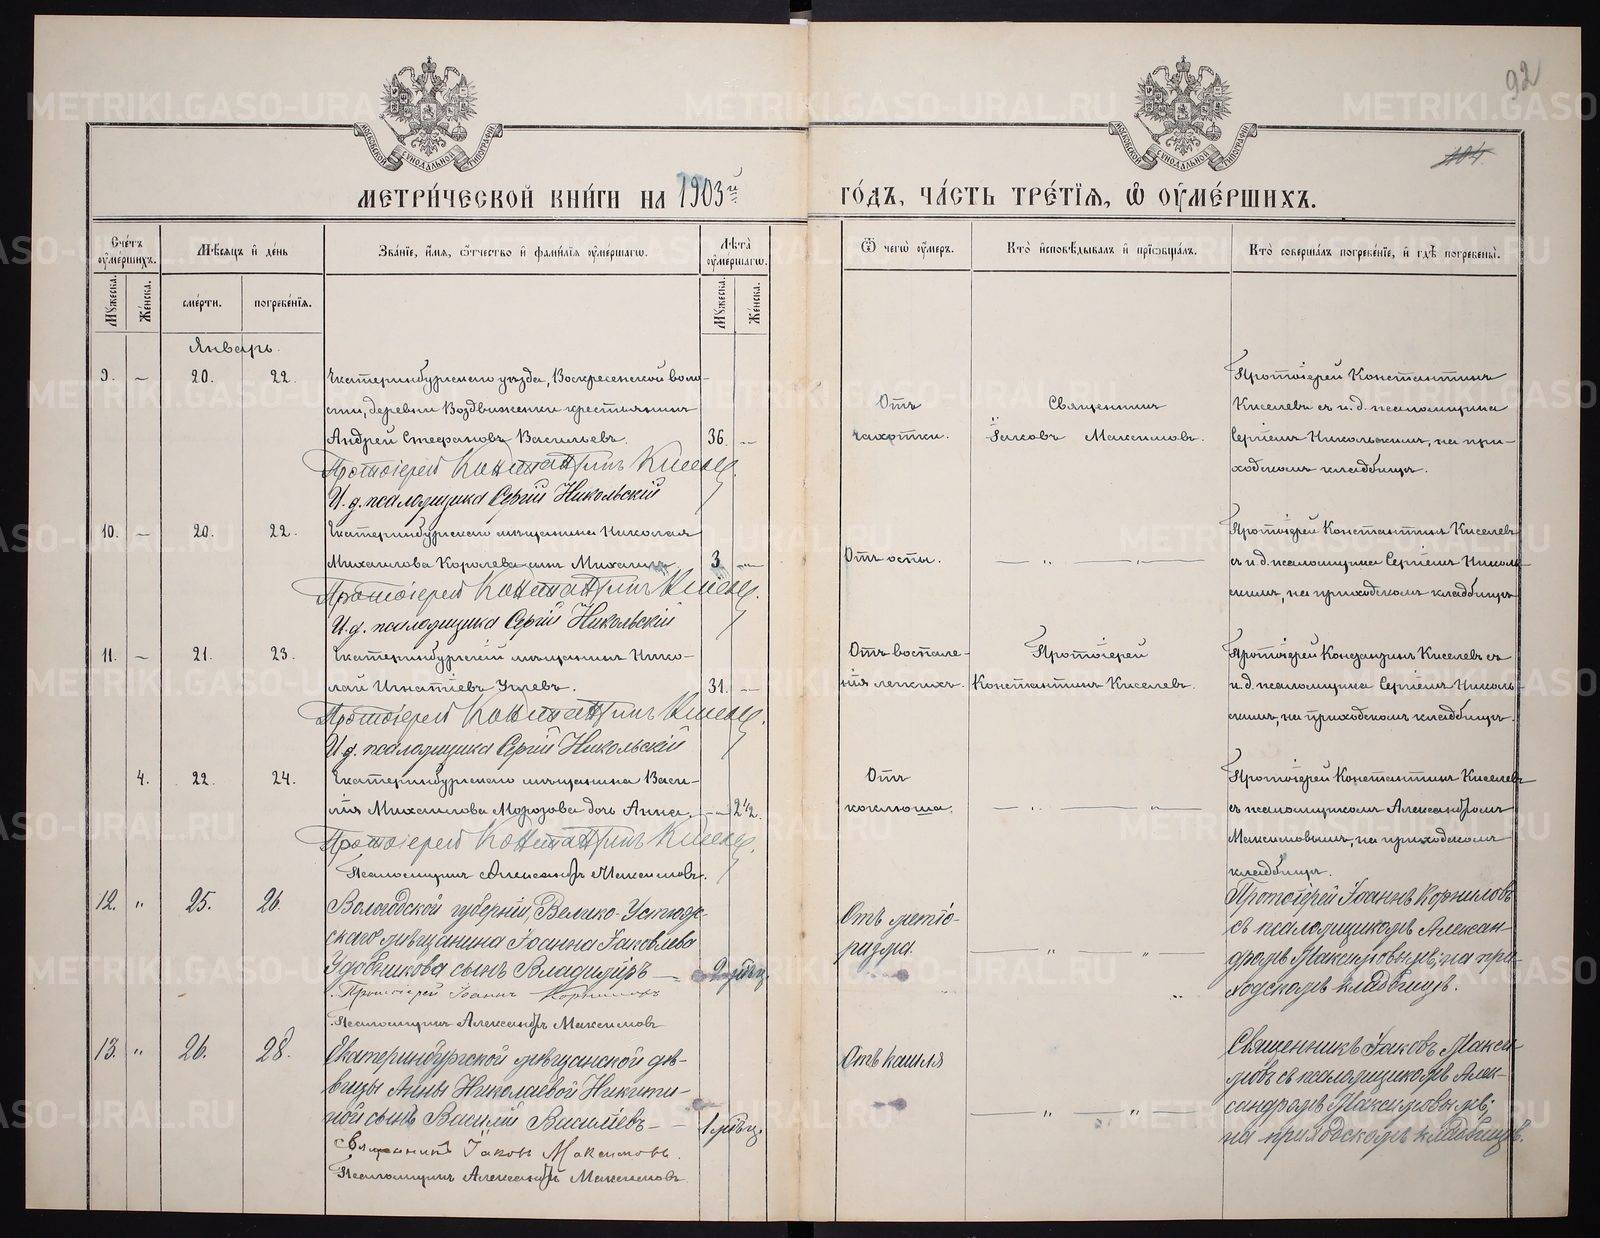 92
104
МЕТРИ́ЧЕСКОЙ КНИ́ГИ НА 1903й
ГО́ДЪ, ЧА́СТЬ ТРЕ́ТІѦ, Ѽ ОУ҆МЕ́РШИХЪ.
Сче́тъ оу҆ме́ршихъ.
Мѣ́сѧцъ и҆ де́нь
Зва́нїе, и҆́мѧ, ѻ҆́тчество и҆ фами́лїѧ оу҆ме́ршагѡ.
Лѣ́та оу҆ме́ршагѡ.
Ѿ чегѡ̀ оу҆́меръ.
Кто̀ и҆сповѣ́дывалъ и҆ прїѡбща́лъ.
Кто̀ соверша́лъ погребе́нїе, и҆ гдѣ̀ погребены̀.
Мꙋ́жеска.
Же́нска.
сме́рти.
погребе́нїѧ.
Мꙋ́жеска.
Же́нска.
Январь.
9. — 20. 22. Екатеринбургскаго уѣзда, Воскресенской воло-
сти, деревни Воздвиженки крестьянинъ
Андрей Стефановъ Васильевъ. 36. —
Протоіерей Константинъ Киселевъ.
И. д. псаломщика Сергій Никольскій
Отъ
чахотки.
Священникъ
Іаковъ Максимовъ.
Протоіерей Константинъ
Киселевъ съ и. д. псаломщика
Сергіемъ Никольскимъ, на при-
ходскомъ кладбищѣ.
10. — 20. 22. Екатеринбургскаго мѣщанина Николая
Михаилова Королева сынъ Михаилъ 3 —
Протоіерей Константинъ Киселевъ.
И. д. псаломщика Сергій Никольскій
Отъ оспы.
— „ — „ —
Протоіерей Константинъ Киселевъ
съ и. д. псаломщика Сергіемъ Николь-
скимъ, на приходскомъ кладбищѣ
11. — 21. 23. Екатеринбургскій мѣщанинъ Нико-
лай Игнатіевъ Углевъ. 31. —
Протоіерей Константинъ Киселевъ.
И. д. псаломщика Сергій Никольскій
Отъ воспале-
нія легкихъ.
Протоіерей
Константинъ Киселевъ.
Протоіерей Константинъ Киселевъ съ
и. д. псаломщика Сергіемъ Николь-
скимъ, на приходскомъ кладбищѣ.
4. 22. 24. Екатеринбургскаго мѣщанина Васи-
лія Михаилова Морозова дочь Анна. — 2 1/2.
Протоіерей Константинъ Киселевъ.
Псаломщикъ Александръ Максимовъ.
Отъ
коклюша.
— „ — „ —
Протоіерей Константинъ Киселевъ
съ псаломщикомъ Александромъ
Максимовымъ, на приходскомъ
кладбищѣ.
12. „ 25. 26. Вологодской губерніи, Велико-Устюж-
скаго мѣщанина Іоанна Іаковлева
Удовникова сынъ Владиміръ — 2 мѣц.
Протоіерей Іоаннъ Корниловъ
Псаломщикъ Александръ Максимовъ
Отъ метіо-
ризма.
— „ — „ —
Протоіерей Іоаннъ Корниловъ
съ псаломщикомъ Алексан-
дромъ Максимовымъ, на при-
ходскомъ кладбищѣ.
13. „ 26. 28. Екатеринбургской мѣщанской дѣ-
вицы Анны Николаевой Никити-
ной сынъ Василій Василіевъ — 1 мѣц.
Священникъ Іаковъ Максимовъ.
Псаломщикъ Александръ Максимовъ.
Отъ кашля
— „ — „ —
Священникъ Іаковъ Макси-
мовъ съ псаломщикомъ Алек-
сандромъ Максимовымъ,
на приходскомъ кладбищѣ.
METRIKI.GASO-URAL.RU